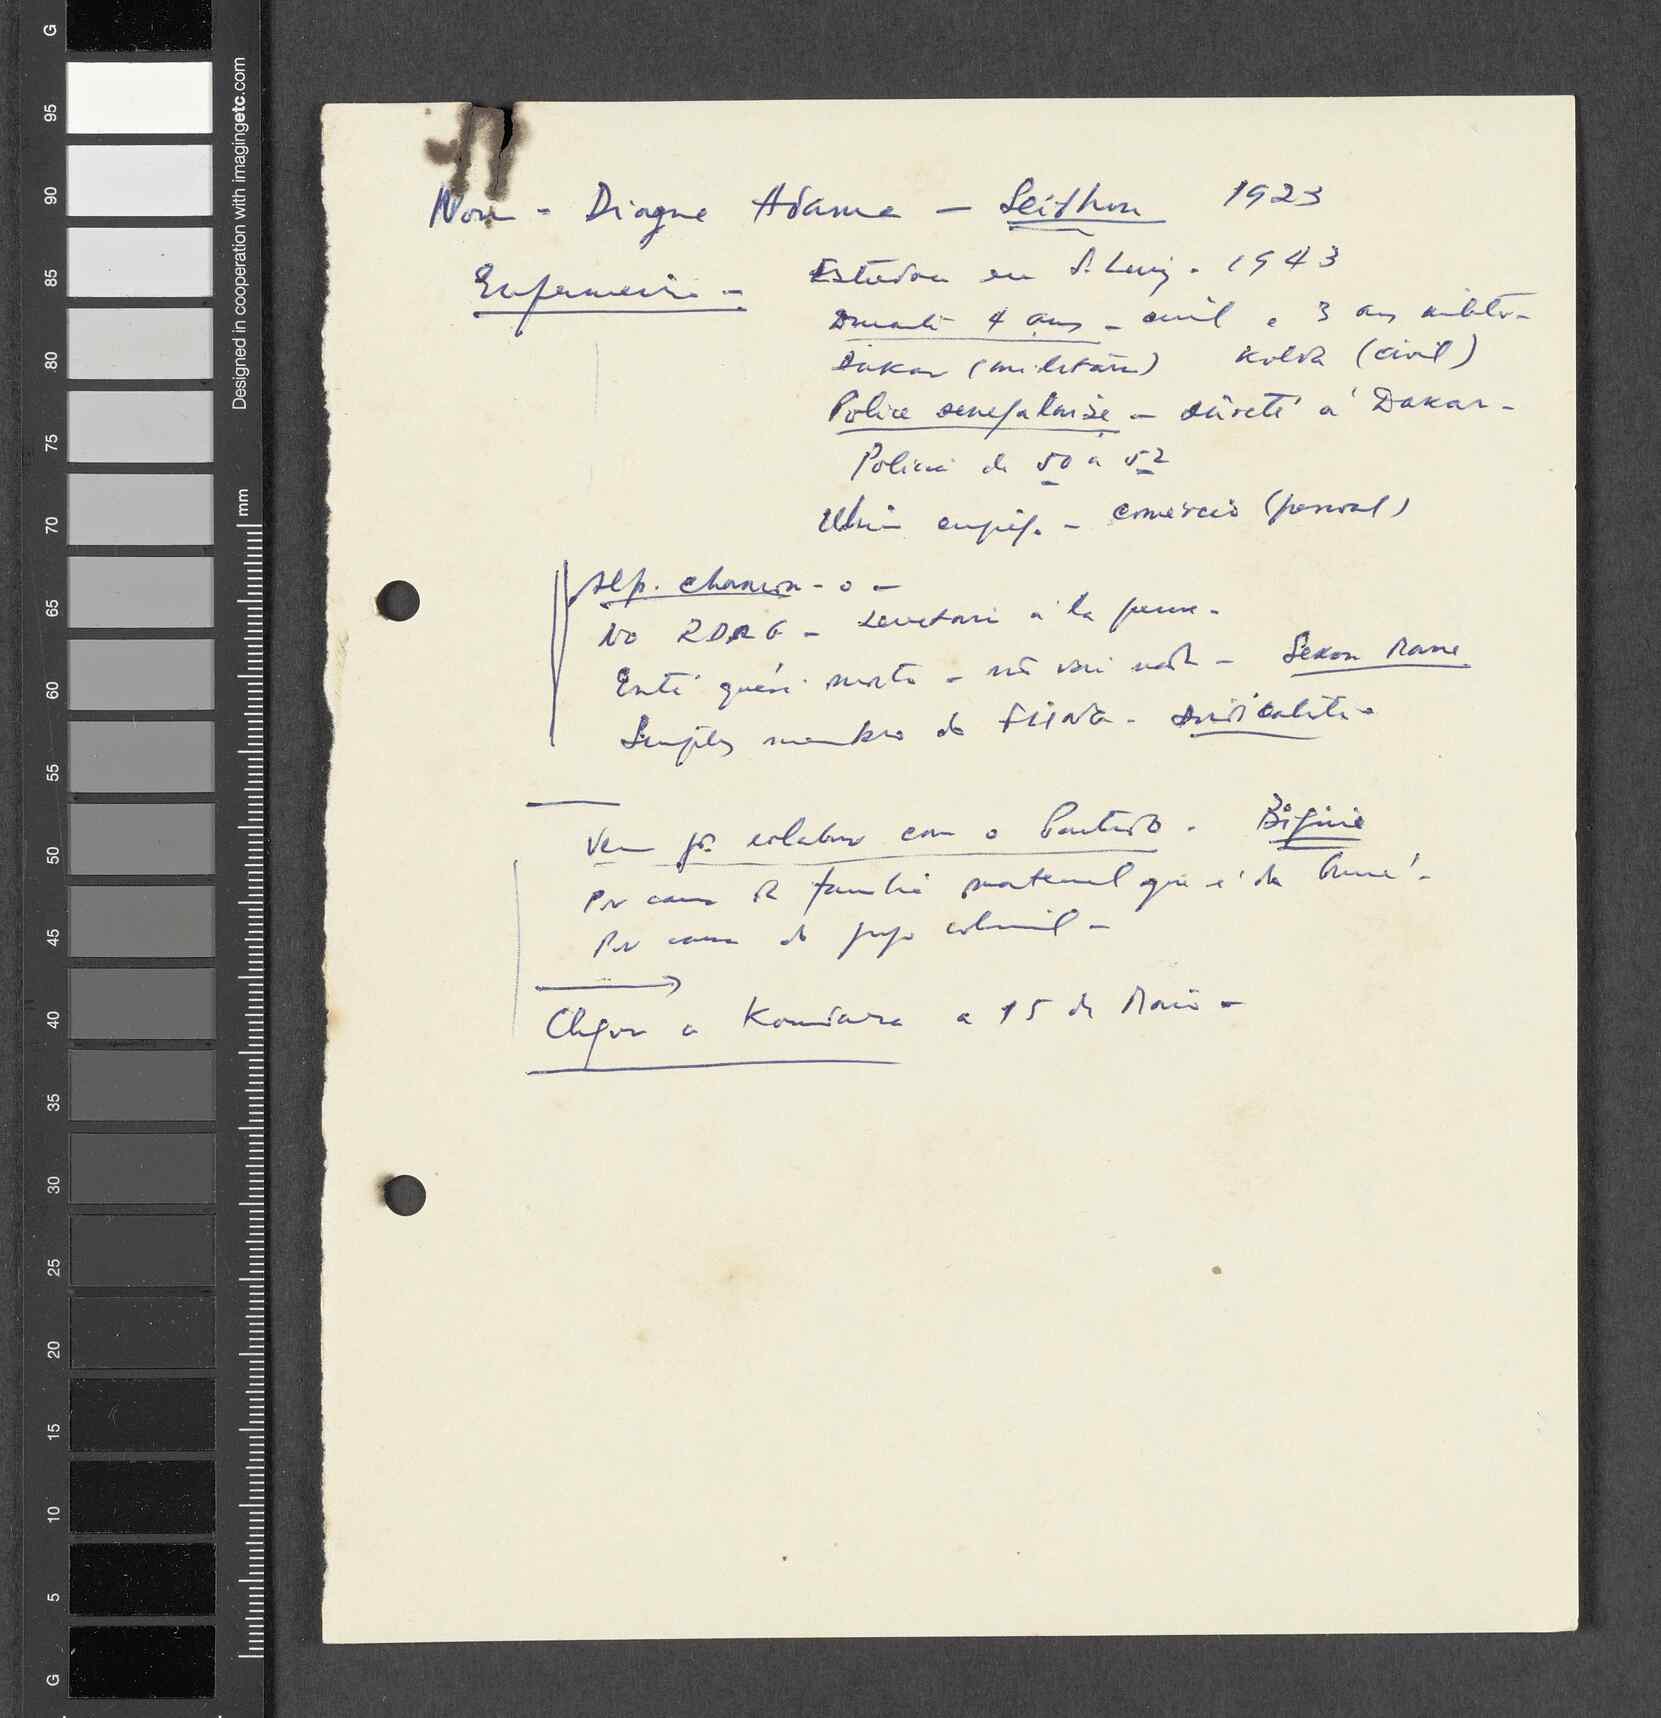 Nom - Diagne Adama - Seidhou 1923
Enfermeiro - Estudou em S. Luiz - 1943
Durante 4 anos - civil e 3 ans milit
Dakar (militar) Kolda (civil)
Police senegalaise - sûreté à Dakar -
Policia de 50 a 52
emprego - comercio (pessoal)
No RDAG - à la
morto - não - Sekou Mane
Simples membro do - sindicalista -
Vem p. colaborar com o Partido - Bignie
Por causa da familia maternal que é da Guiné -
Por causa do jugo colonial -
Chegou a Koundara a 15 de Maio -
G
95
90
85
80
75
70
65
60
55
50
45
40
35
30
25
20
15
10
5
G
mm
Designed in cooperation with imagingetc.com